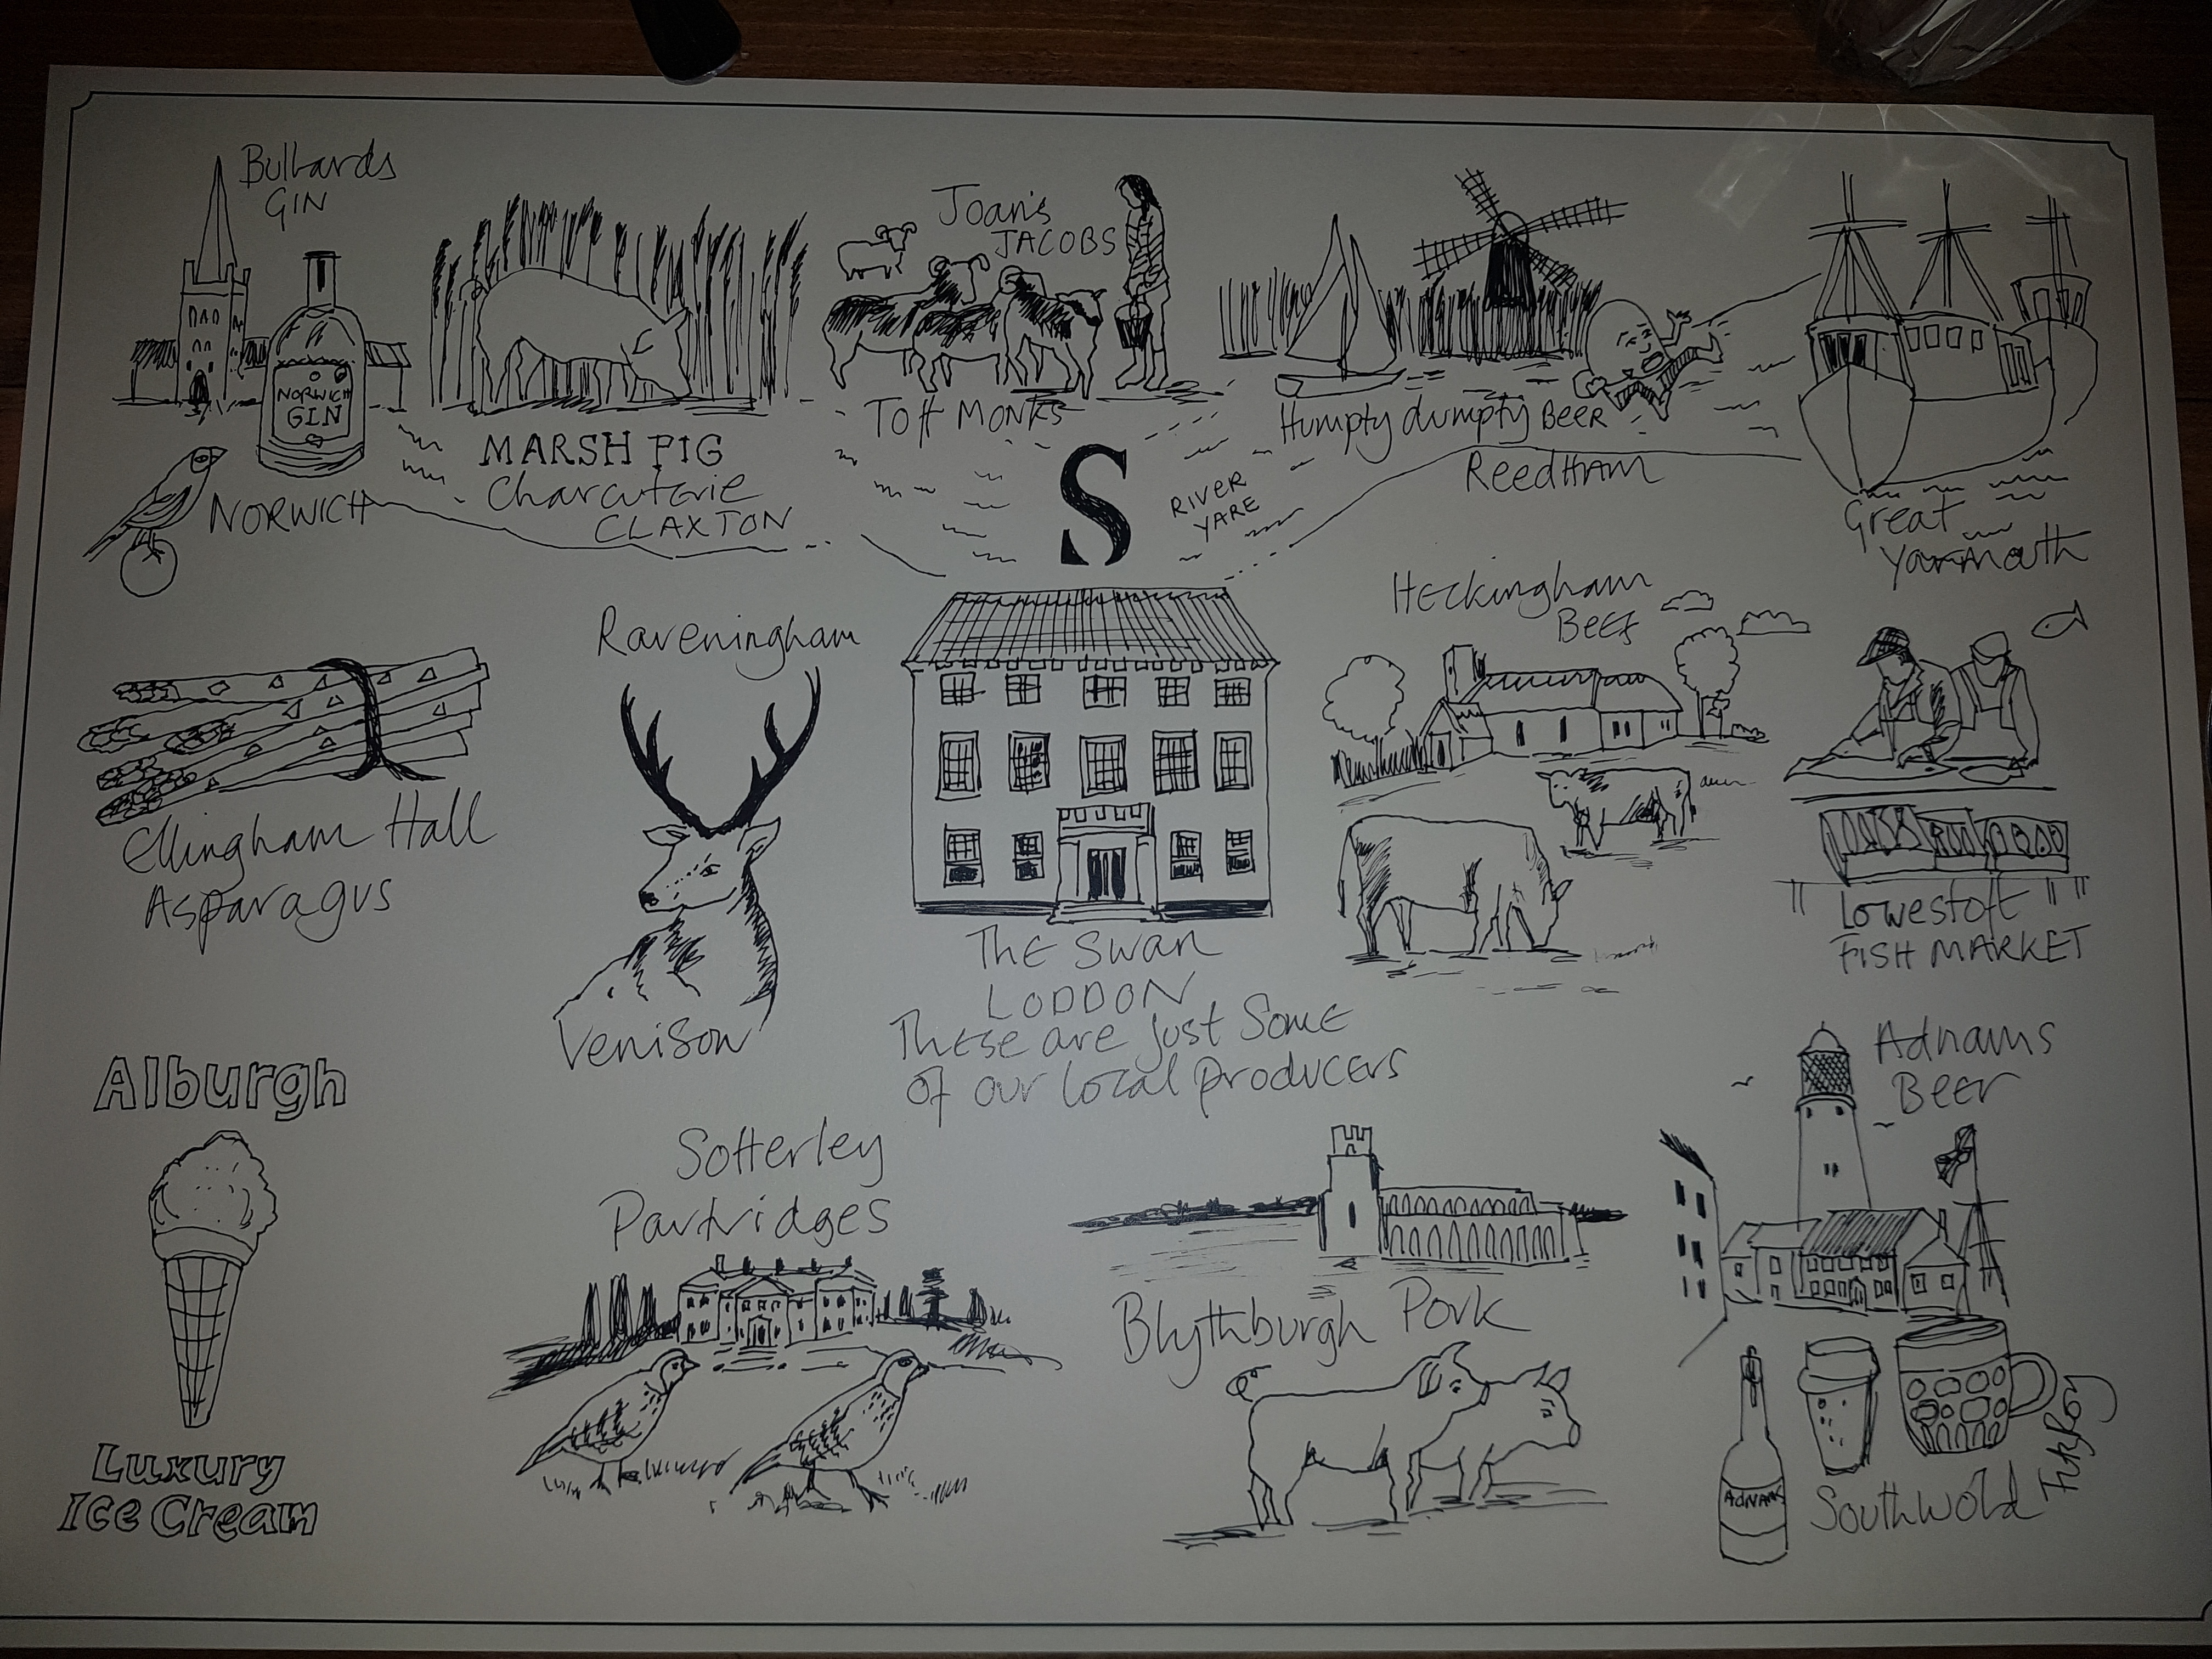 Bullards
GIN
NORWICH
GIN
NORWICH
MARSH PIG
Charcuterie
CLAXTON
Joan's
JACOBS
Toft MONKS
S
RIVER
YARE
Humpty dumpty BEER
ReedHAM
Great
Yarmouth
Ellingham Hall
Asparagus
Raveningham
Venison
THE SWAN
LODDON
These are just Some
of our local producers
Heckingham
Beef
" Lowestoft "
FISH MARKET
Alburgh
Luxury
Ice Cream
Sotterley
Partridges
Blythburgh Pork
Adnams
Beer
ADNAMS
Southwold